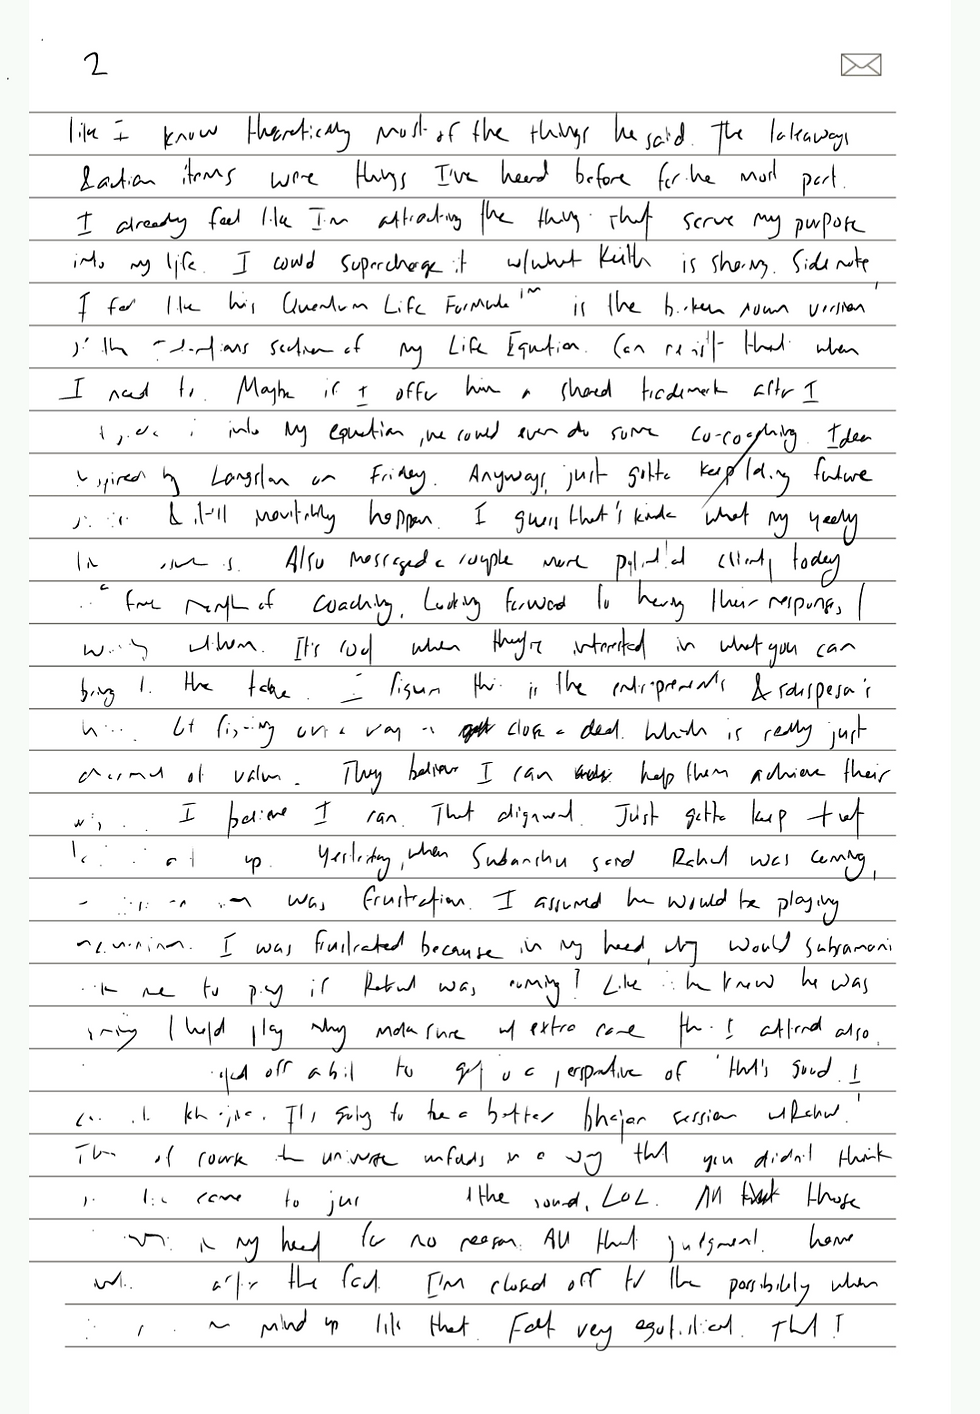 2
like I know theoretically most of the things he said. The takeaways
& action items were things I've heard before for the most part.
I already feel like I'm attracting the things that serve my purpose
into my life. I could supercharge it w/what Keith is sharing. Side note,
I feel like his Quantum Life Formula™ is the broken down version
section of my Life Equation. Can revisit that when
I need to. Maybe if I offer him a shared trademark after I
into my equation, we could even do some co-coaching. Idea
inspired by Langston on Friday. Anyways, just gotta keep future
& it'll inevitably happen. I guess that's kinda what my yearly
Also messaged a couple more potential clients today
free month of coaching. Looking forward to hearing their responses /
w/them. It's cool when they're interested in what you can
bring to the table. I figure this is the entrepreneur's & salesperson's
of figuring out a way to close a deal. Which is really just
of value. They believe I can help them achieve their
I believe I can. That alignment. Just gotta keep
up. Yesterday, when Subanshu said Rahul was coming,
was frustration. I assumed he would be playing
I was frustrated because in my head, why would Subramani
me to play if Rahul was coming? Like if he knew he was
play why make sure w/ extra care that I attend also.
off a bit to get to a perspective of "that's good. I
It's going to be a better bhajan session w/Rahul."
Then of course the universe unfolds in a way that you didn't think
came to just the sound, LOL. All those
in my head for no reason. All that judgment.
after the fact. I'm closed off to the possibility when
mind up like that. Felt very egotistical. That I